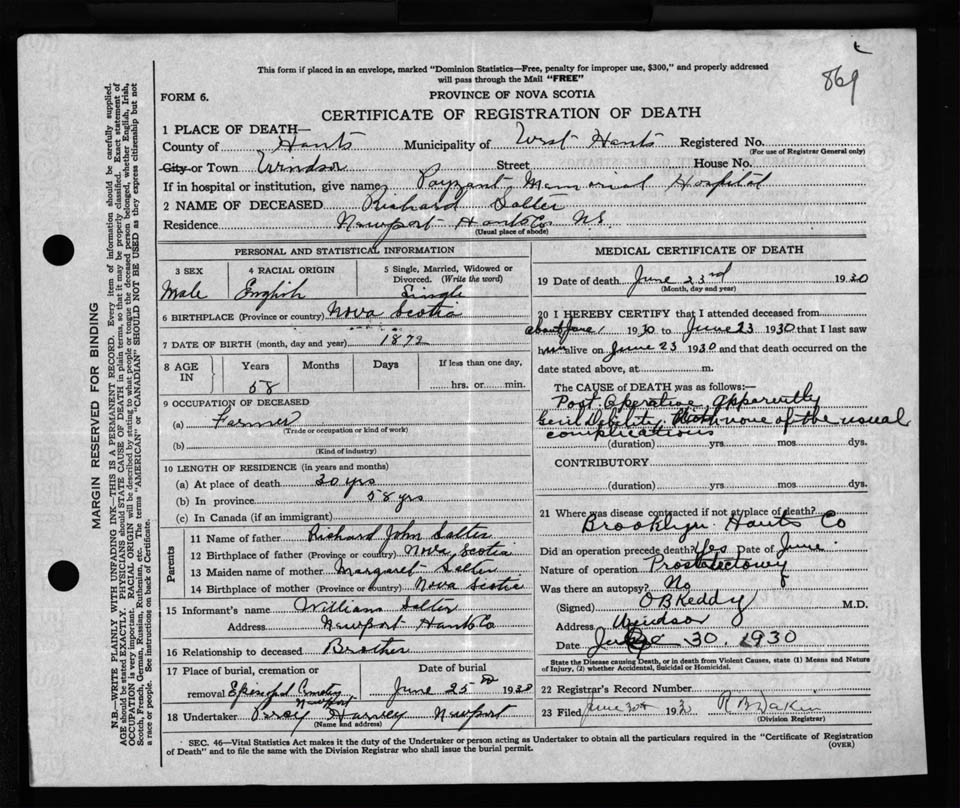 869
This form if placed in an envelope, marked "Dominion Statistics—Free, penalty for improper use, $300," and properly addressed
will pass through the Mail "FREE"
FORM 6.
PROVINCE OF NOVA SCOTIA
CERTIFICATE OF REGISTRATION OF DEATH
1 PLACE OF DEATH—
County of Hants Municipality of West Hants Registered No.
(For use of Registrar General only)
City or Town Windsor Street House No.
If in hospital or institution, give name Payzant Memorial Hospital
2 NAME OF DECEASED Richard Salter
Residence Newport Hants Co N.S.
(Usual place of abode)
PERSONAL AND STATISTICAL INFORMATION
3 SEX 4 RACIAL ORIGIN 5 Single, Married, Widowed or Divorced. (Write the word)
Male English Single
6 BIRTHPLACE (Province or country) Nova Scotia
7 DATE OF BIRTH (month, day and year) 1872
8 AGE IN Years Months Days If less than one day,
58 hrs. or min.
9 OCCUPATION OF DECEASED
(a) Farmer
(Trade or occupation or kind of work)
(b)
(Kind of industry)
10 LENGTH OF RESIDENCE (in years and months)
(a) At place of death 30 yrs
(b) In province 58 yrs
(c) In Canada (if an immigrant)
Parents
11 Name of father Richard John Salter
12 Birthplace of father (Province or country) Nova Scotia
13 Maiden name of mother Margaret Salter
14 Birthplace of mother (Province or country) Nova Scotia
15 Informant's name William Salter
Address Newport Hants Co
16 Relationship to deceased Brother
17 Place of burial, cremation or Date of burial
removal Episcopal Cemetery Newport June 25 1930
18 Undertaker Percy Harvey Newport
(Name and address)
MEDICAL CERTIFICATE OF DEATH
19 Date of death June 23rd 1930
(Month, day and year)
20 I HEREBY CERTIFY that I attended deceased from
about June 1 1930 to June 23 1930 that I last saw
him alive on June 23 1930 and that death occurred on the
date stated above, at m.
The CAUSE of DEATH was as follows:—
Post Operative apparently
Genl Debility, none of the usual
complications
(duration) yrs. mos. dys.
CONTRIBUTORY
(duration) yrs. mos. dys.
21 Where was disease contracted if not at place of death?
Brooklyn Hants Co
Did an operation precede death? Yes Date of June
Nature of operation Prostatectomy
Was there an autopsy? No
(Signed) O B Keddy M.D.
Address Windsor
Date June 30. 1930
State the Disease causing Death, or in death from Violent Causes, state (1) Means and Nature
of Injury, (2) whether Accidental, Suicidal or Homicidal.
22 Registrar's Record Number
23 Filed June 30th 1930 R B Dakin
(Division Registrar)
SEC. 46—Vital Statistics Act makes it the duty of the Undertaker or person acting as Undertaker to obtain all the particulars required in the "Certificate of Registration
of Death" and to file the same with the Division Registrar who shall issue the burial permit. (OVER)
MARGIN RESERVED FOR BINDING
N.B.—WRITE PLAINLY WITH UNFADING INK—THIS IS A PERMANENT RECORD. Every item of information should be carefully supplied.
AGE should be stated EXACTLY. PHYSICIANS should STATE CAUSE OF DEATH in plain terms, so that it may be properly classified. Exact statement of
OCCUPATION is very important. RACIAL ORIGIN will be described by stating to what people or tongue the deceased person belonged, whether English, Irish,
Scotch, French, German, Russian, Ruthenian, etc. The terms "AMERICAN" or "CANADIAN" SHOULD NOT BE USED as they express citizenship but not
a race or people. See instructions on back of Certificate.